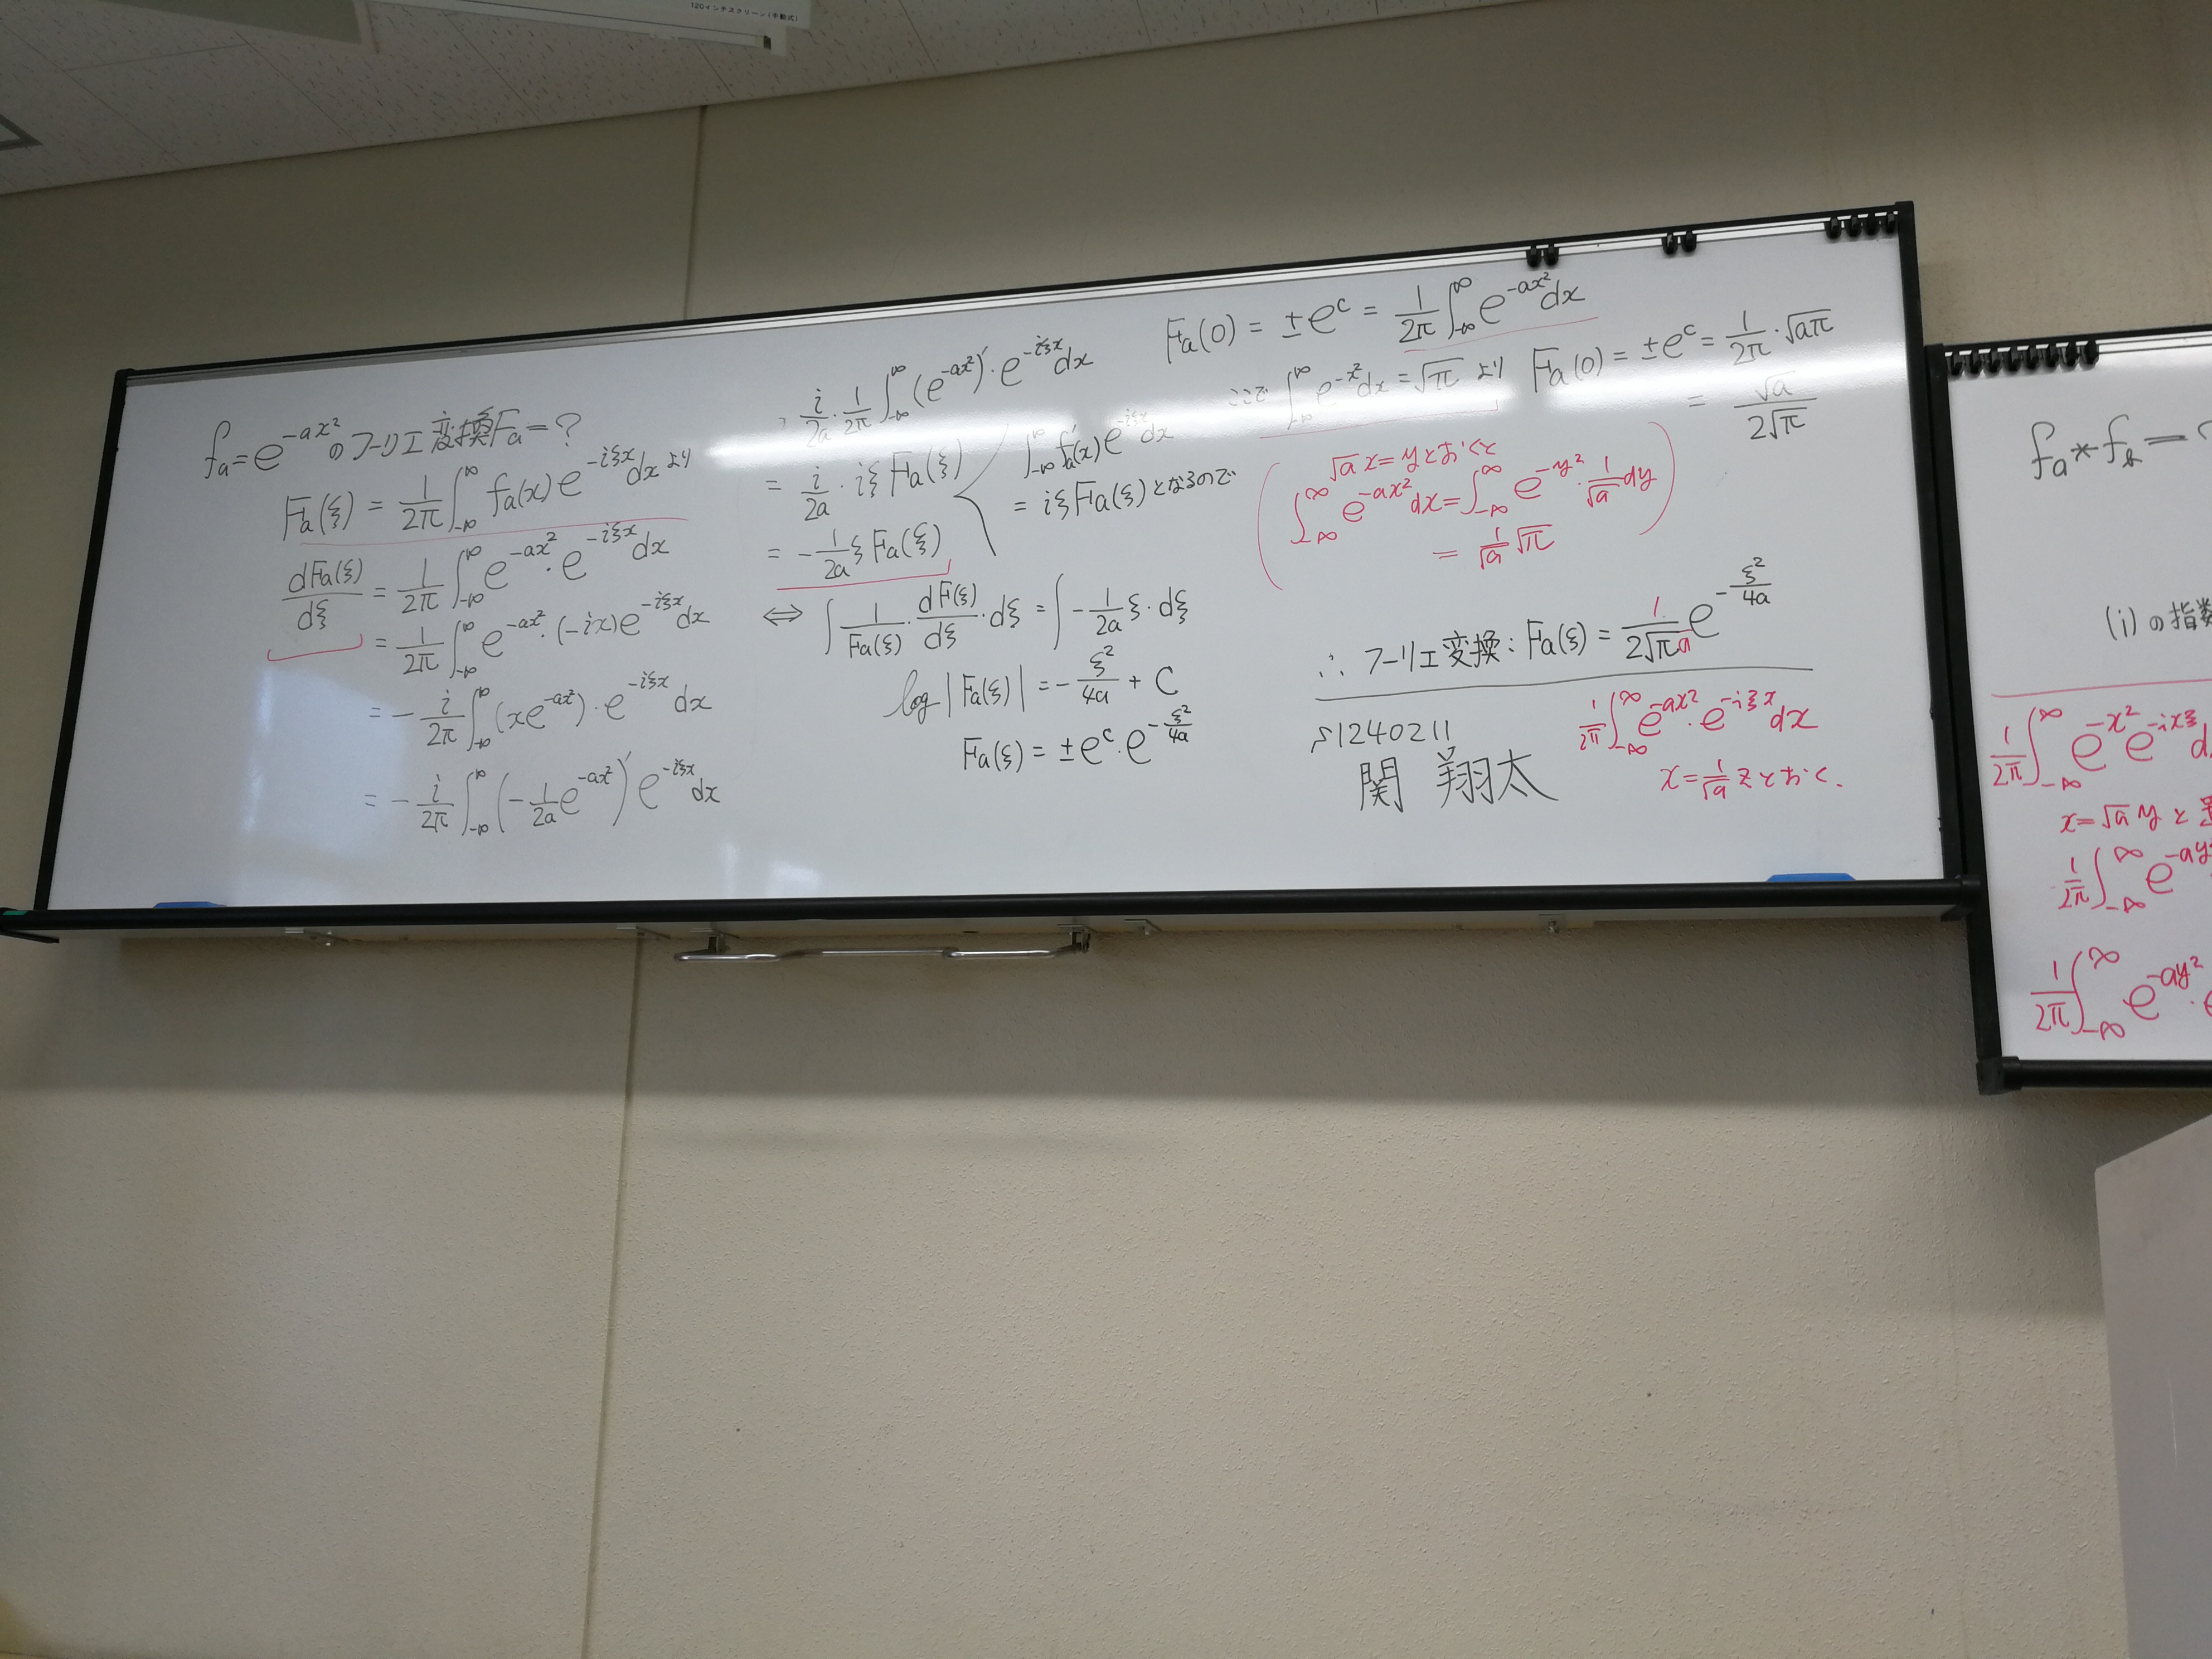 120インチスクリーン(手動式)
fa=e^{-ax²}のフーリエ変換Fa=?
Fa(ξ) = \frac{1}{2π}∫_{-∞}^{∞} fa(x)e^{-iξx}dx より
\frac{dFa(ξ)}{dξ} = \frac{1}{2π}∫_{-∞}^{∞} e^{-ax²}・e^{-iξx}dx
= \frac{1}{2π}∫_{-∞}^{∞} e^{-ax²}・(-ix)e^{-iξx}dx
= -\frac{i}{2π}∫_{-∞}^{∞} (xe^{-ax²})・e^{-iξx}dx
= -\frac{i}{2π}∫_{-∞}^{∞} (-\frac{1}{2a}e^{-ax²})' e^{-iξx}dx
\frac{i}{2a}・\frac{1}{2π}∫_{-∞}^{∞} (e^{-ax²})'・e^{-iξx}dx
= \frac{i}{2a}・iξFa(ξ)
∫_{-∞}^{∞} fa'(x)e^{-iξx}dx
= iξFa(ξ)となるので
= -\frac{1}{2a}ξFa(ξ)
⇔ ∫\frac{1}{Fa(ξ)}・\frac{dF(ξ)}{dξ}・dξ = ∫-\frac{1}{2a}ξ・dξ
log|Fa(ξ)| = -\frac{ξ²}{4a} + C
Fa(ξ) = ±e^c・e^{-\frac{ξ²}{4a}}
Fa(0) = ±e^c = \frac{1}{2π}∫_{-∞}^{∞} e^{-ax²}dx
ここで ∫_{-∞}^{∞} e^{-x²}dx = √π より Fa(0) = ±e^c = \frac{1}{2π}・√aπ
= \frac{√a}{2√π}
√a x = y とおくと
∫_{-∞}^{∞} e^{-ax²}dx = ∫_{-∞}^{∞} e^{-y²}・\frac{1}{√a}dy
= \frac{1}{√a}√π
∴ フーリエ変換: Fa(ξ) = \frac{1}{2√πa}e^{-\frac{ξ²}{4a}}
s1240211
関 翔太
\frac{1}{2π}∫_{-∞}^{∞} e^{-ax²}・e^{-iξx}dx
x = \frac{1}{√a}z とおく.
fa*fb=
(i)の指数
\frac{1}{2π}∫_{-∞}^{∞} e^{-x²}e^{-ixξ}d
x=√a y と
\frac{1}{2π}∫_{-∞}^{∞} e^{-ay²}
\frac{1}{2π}∫_{-∞}^{∞} e^{-ay²}・